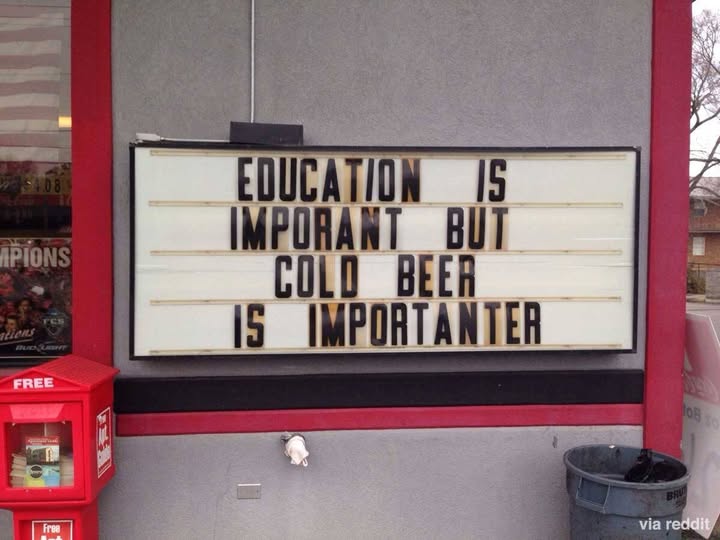 EDUCATION IS
IMPORANT BUT
COLD BEER
IS IMPORTANTER
MPIONS
BUD LIGHT
FREE
Free
via reddit